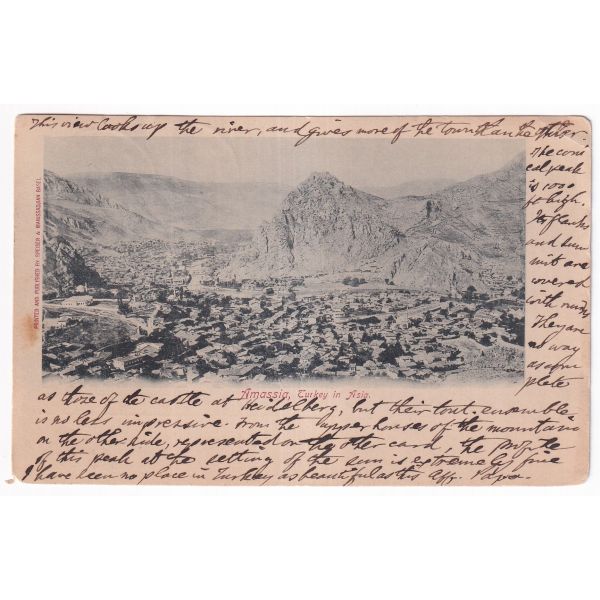 This view looks up the river, and gives more of the town than the other.
The coni
cal peak
is 1000
ft high.
Its flanks
and sum
mit are
covered
with ruins
They are
no way
as com
plete
as those of the castle at Heidelberg, but their tout-ensemble
is no less impressive. From the upper houses of the mountain
on the other side, represented on the other card, the profile
of this peak at the setting of the sun is extremely fine
I have seen no place in Turkey as beautiful as this Aff. Papa.
Amassia, Turkey in Asia.
PRINTED AND PUBLISHED BY SPEISER & MANISSADJIAN BASEL